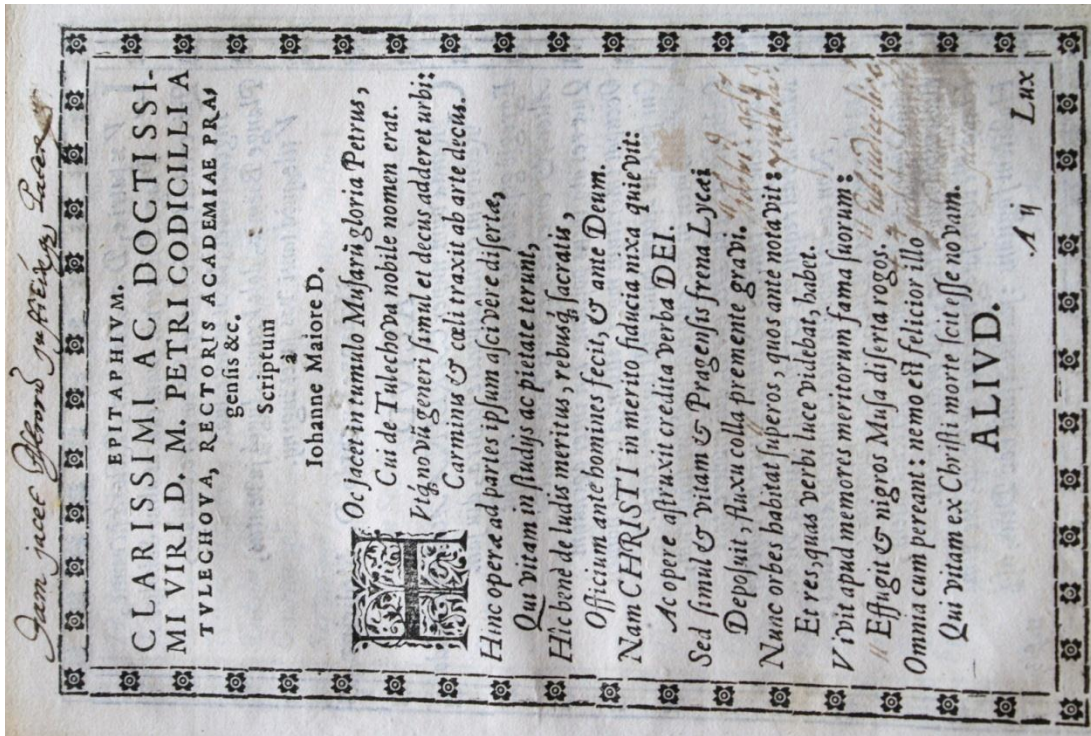 Jam jacet
EPITAPHIVM.
CLARISSIMI AC DOCTISSI-
MI VIRI D. M. PETRI CODICILLI A
TVLECHOVA, RECTORIS ACADEMIAE PRA,
gensis &c.
Scriptum
à
Iohanne Maiore D.
HOc jacet in tumulo Musarũ gloria Petrus,
Cui de Tulechova nobile nomen erat.
Vtq́ novũ generi simul et decus adderet urbi:
Carminis & cœli traxit ab arte decus.
Hinc operæ ad partes ipsum ascivêre disertæ,
Qui vitam in studijs ac pietate terunt,
Hic benè de ludis meritus, rebusq́ sacratis,
Officium ante homines fecit, & ante Deum.
Nam CHRISTI in merito fiducia nixa quievit:
Ac opere astruxit credita verba DEI.
Sed simul & vitam & Pragensis frena Lycæi
Deposuit, fluxu colla premente gravi.
Nunc orbes habitat superos, quos ante notavit:
Et res, quas verbi luce videbat, habet.
Vivit apud memores meritorum fama suorum:
Effugit & nigros Musa diserta rogos.
Omnia cum pereant: nemo est felicior illo
Qui vitam ex Christi morte scit esse novam.
ALIVD.
A ij Lux